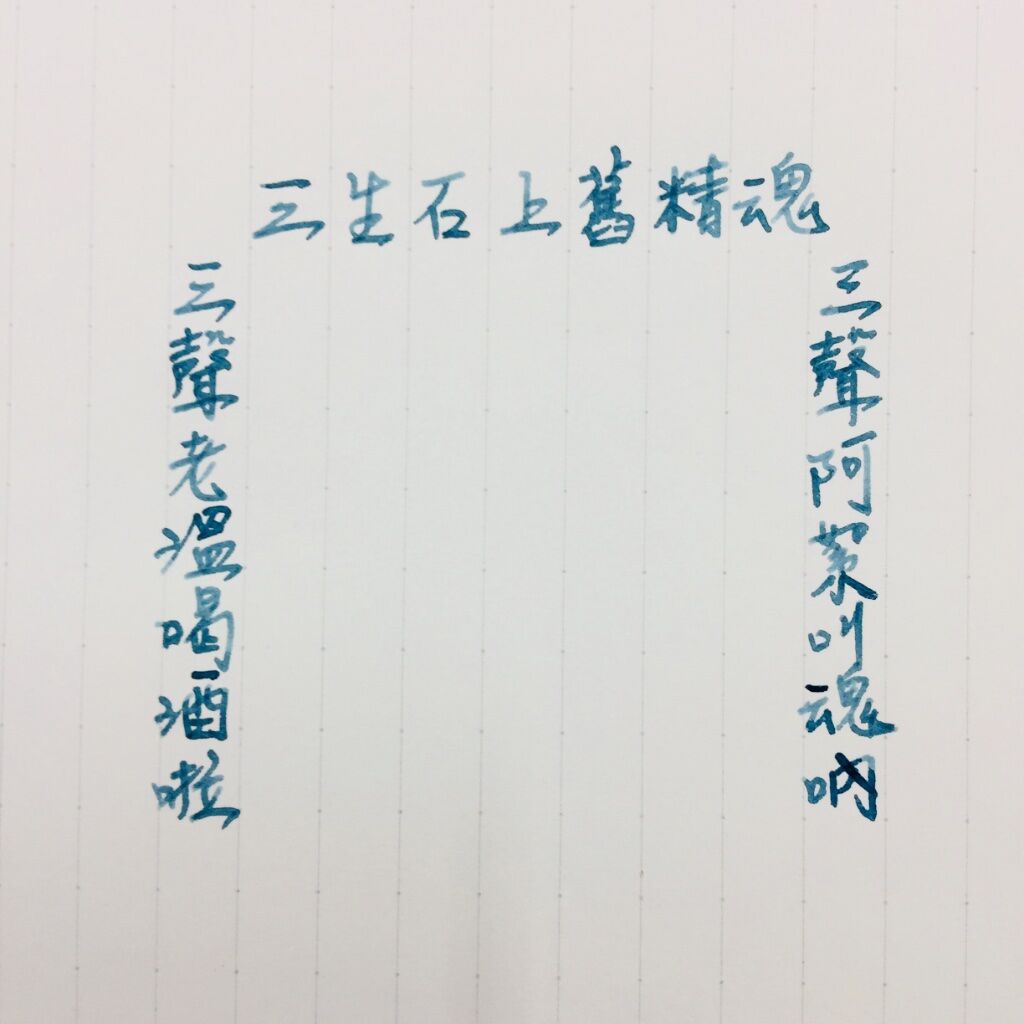 三生石上舊精魂
三聲阿絮叫魂吶
三聲老溫喝酒啦